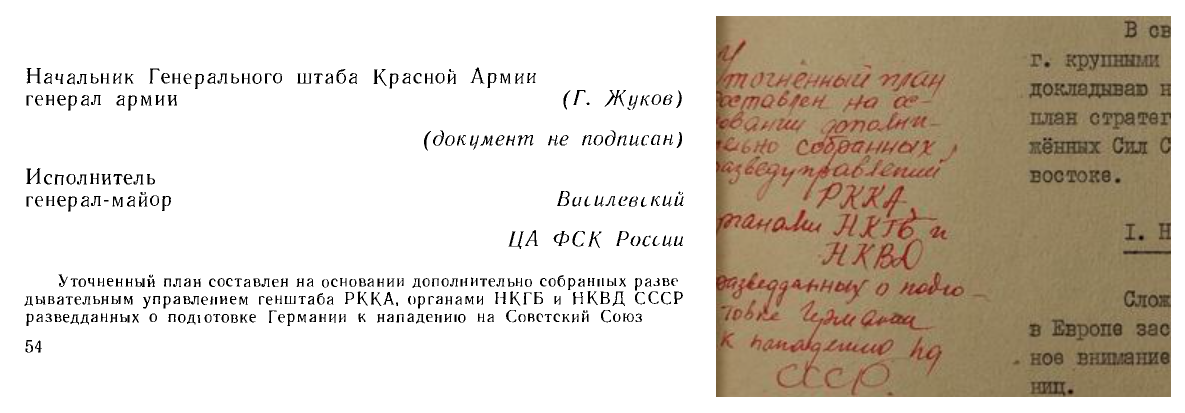 Начальник Генерального штаба Красной Армии
генерал армии (Г. Жуков)
(документ не подписан)
Исполнитель
генерал-майор Василевский
ЦА ФСК России
Уточненный план составлен на основании дополнительно собранных разве
дывательным управлением генштаба РККА, органами НКГБ и НКВД СССР
разведданных о подготовке Германии к нападению на Советский Союз
54
У
точненный план
составлен на ос-
новании дополни-
тельно собранных,
разведуправлений
РККА,
органами НКГБ и
НКВД
разведданных о подго-
товке Германии
к нападению на
СССР.
В св
г. крупными
докладываю н
план стратег
жённых Сил С
востоке.
I. Н
Слож
в Европе зас
ное внимание
ниц.